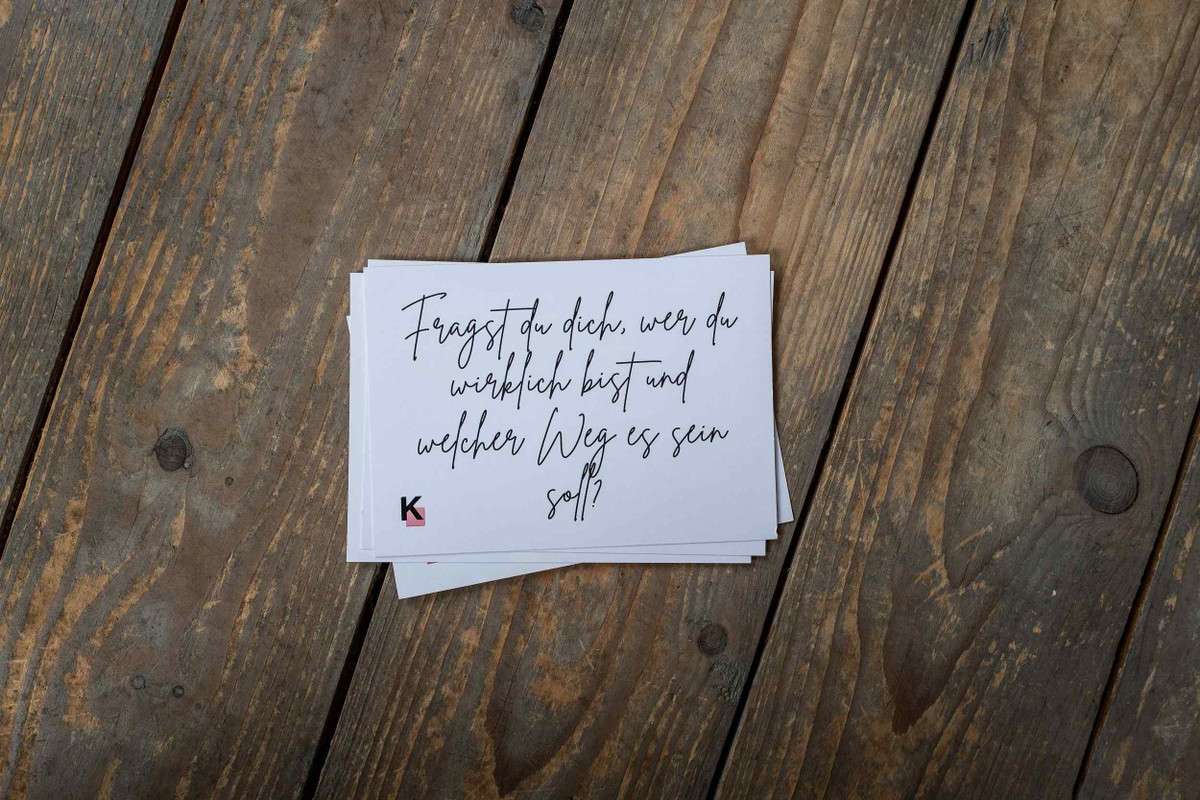 Fragst du dich, wer du
wirklich bist und
welcher Weg es sein
soll?
K